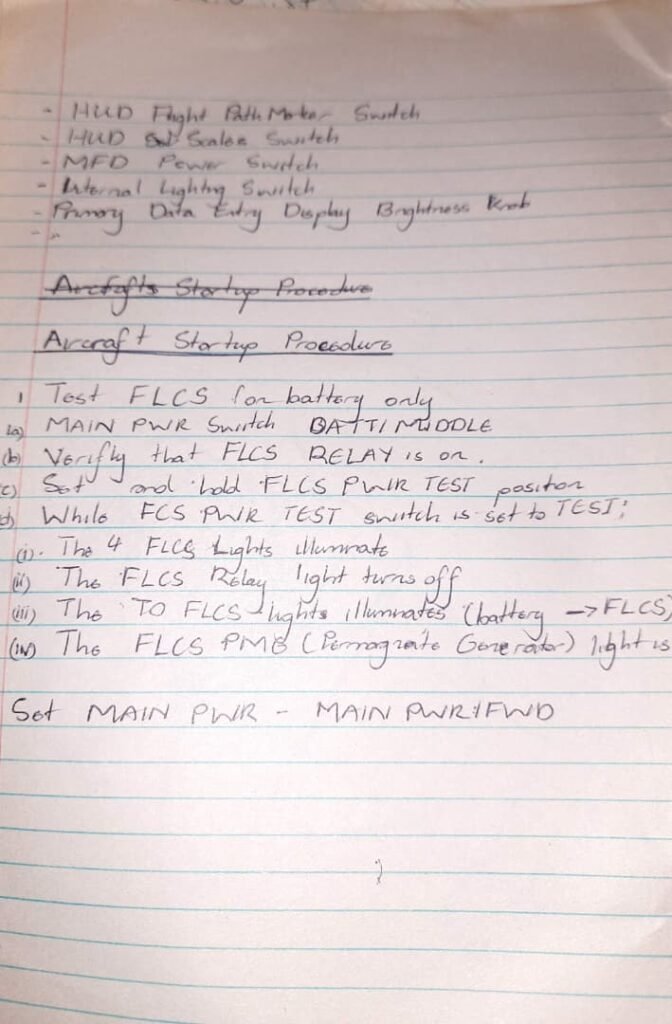 - HUD Flight Path Marker Switch
- HUD Scales Switch
- MFD Power Switch
- Internal Lighting Switch
- Primary Data Entry Display Brightness Knob
- "
Aircrafts Startup Procedure
Aircraft Startup Procedure
1 Test FLCS for battery only
1a) MAIN PWR Switch BATT/MIDDLE
(b) Verifly that FLCS RELAY is on.
c) Set and hold FLCS PWR TEST position
d) While FCS PWR TEST switch is set to TEST;
(i). The 4 FLCS Lights illuminate
(ii) The FLCS Relay light turns off
(iii) The TO FLCS lights illuminates (battery → FLCS)
(iv) The FLCS PMG (Permagnate Generator) light is
Set MAIN PWR - MAIN PWR/FWD